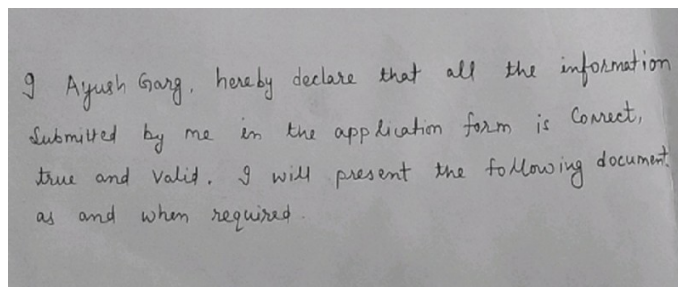 I Ayush Garg, hereby declare that all the information
Submitted by me in the application form is Correct,
true and Valid. I will present the following document
as and when required.